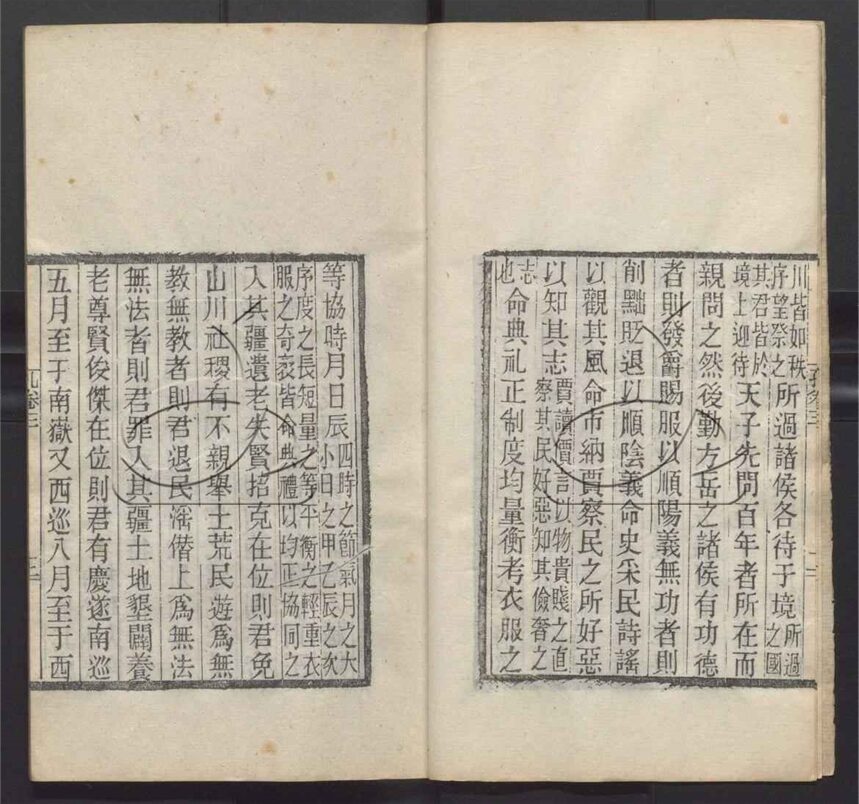 川皆如秩
序望祭之
所過諸侯各待于境
所過
之國
其君皆於
境上迎待
天子先問百年者所在而
親問之然後勤方岳之諸侯有功德
者則發爵賜服以順陽義無功者則
削黜貶退以順陰義命史采民詩謠
以觀其風命市納賈察民之所好惡
以知其志
賈讀價言以物貴賤之直
察其民好惡知其儉奢之
志
也
命典礼正制度均量衡考衣服之
等協時月日辰
四時之節氣月之大
小日之甲乙辰之次
序度之長短量之等平衡之輕重衣
服之奇衺皆命典禮以均正協同之
入其疆遺老失賢掊克在位則君免
山川社稷有不親舉土荒民遊爲無
教無教者則君退民淫僭上爲無法
無法者則君罪入其疆土地墾闢養
老尊賢俊傑在位則君有慶遂南巡
五月至于南嶽又西巡八月至于西
孔卷三